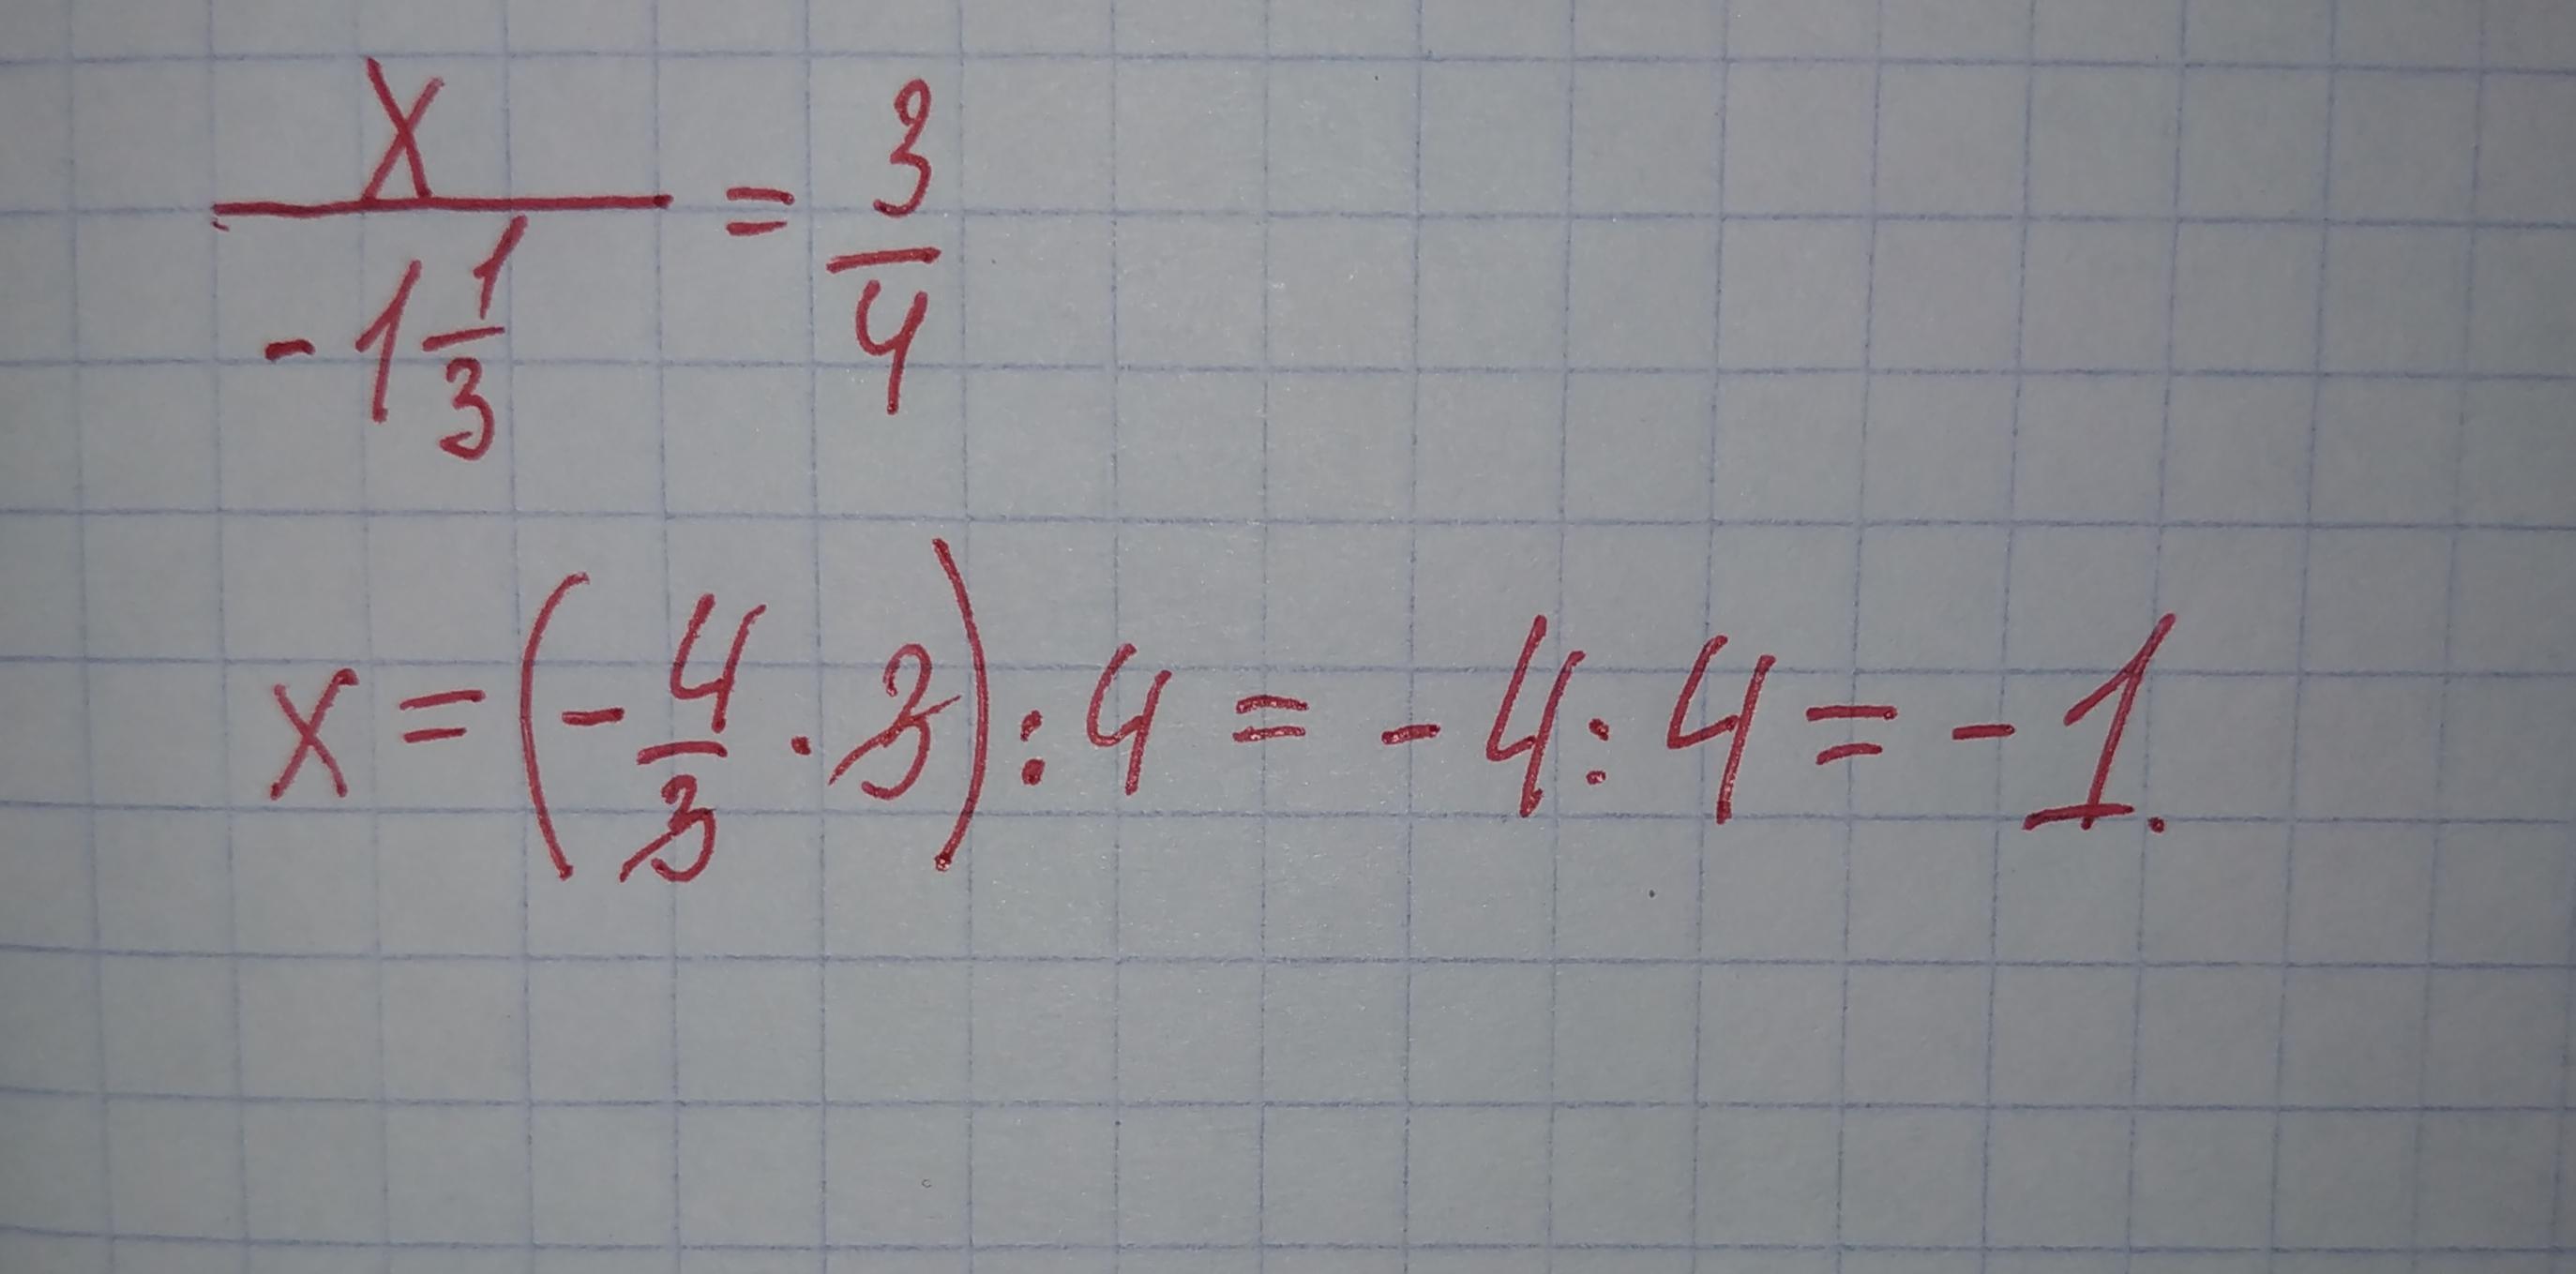 x / -1 1/3 = 3/4
x = (-4/3 · 3) : 4 = -4 : 4 = -1.